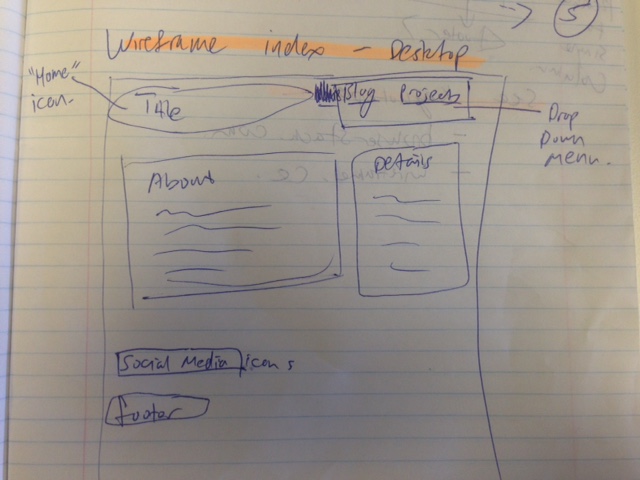 5
Wireframe index - Desktop
"Home"
icon.
Title
Blog Projects
Drop
Down
Menu.
About
Details
Social Media icons
footer